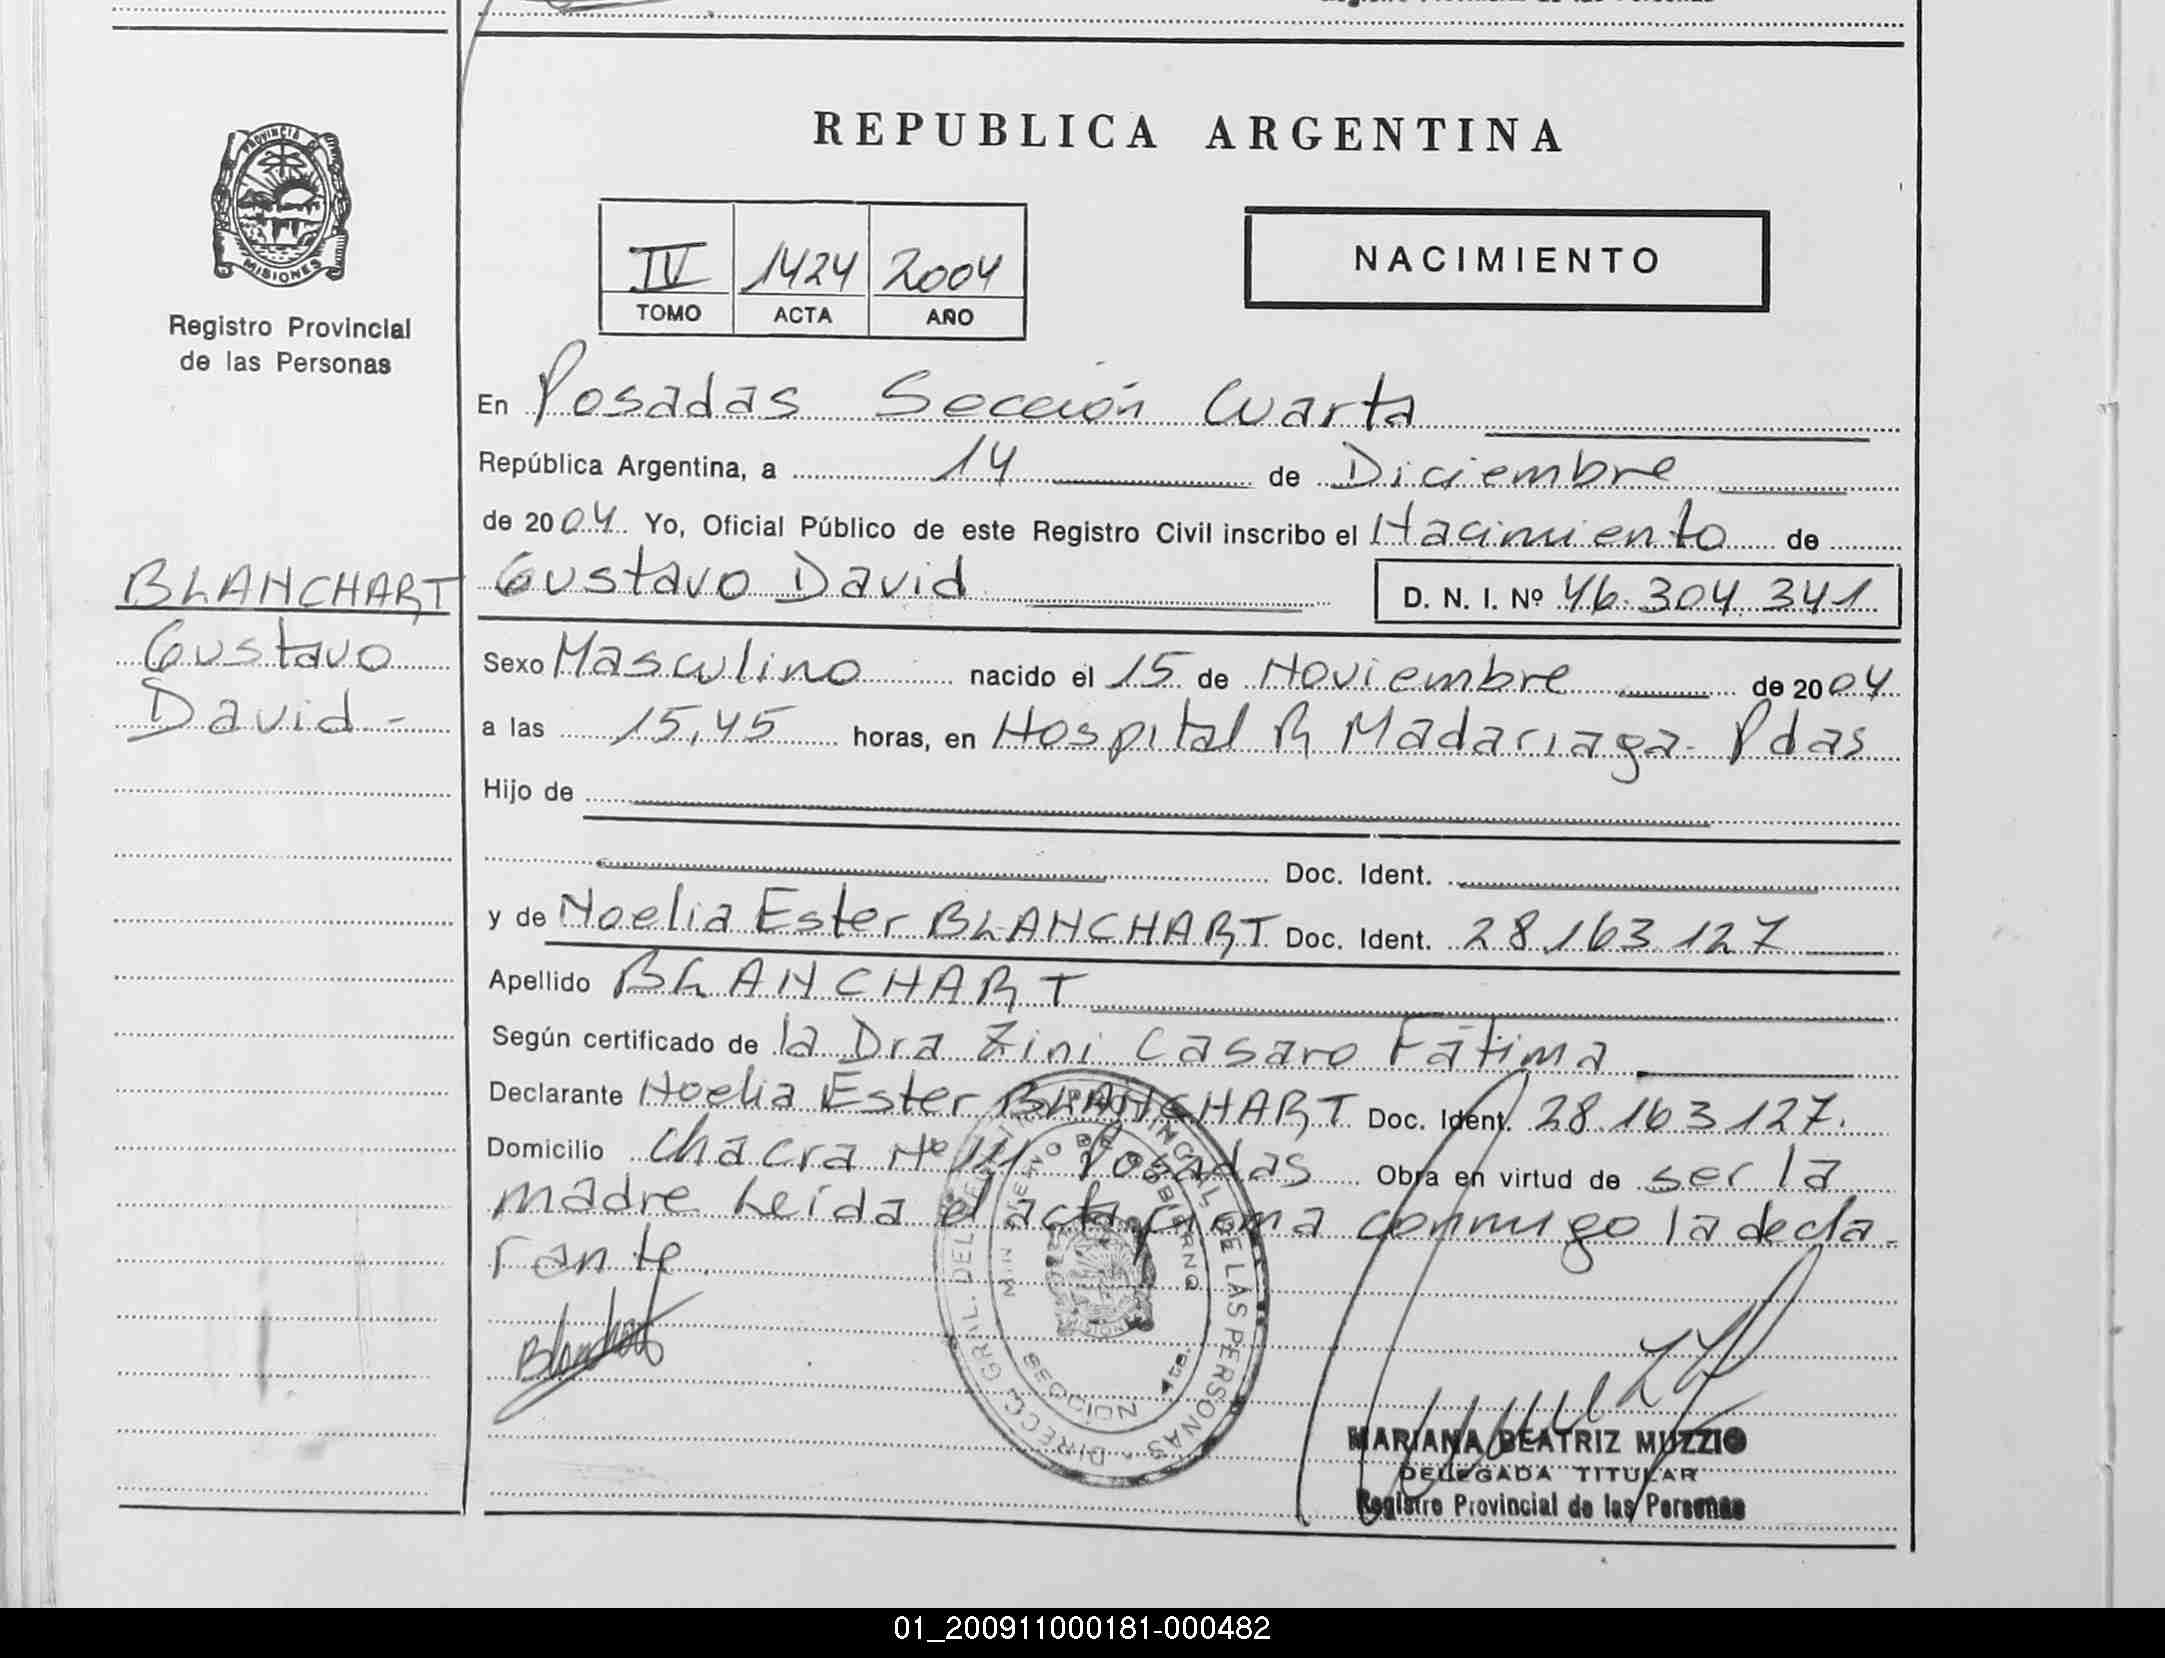 REPUBLICA ARGENTINA
PROVINCIA DE
MISIONES
Registro Provincial
de las Personas
IV 1424 2004
TOMO ACTA AÑO
NACIMIENTO
En Posadas Sección Cuarta
República Argentina, a 14 de Diciembre
de 2004 Yo, Oficial Público de este Registro Civil inscribo el Nacimiento de
BLANCHART
Gustavo
David -
Gustavo David D. N. I. Nº 46.304.341
Sexo Masculino nacido el 15 de Noviembre de 2004
a las 15,45 horas, en Hospital R Madariaga - Pdas
Hijo de
Doc. Ident.
y de Noelia Ester BLANCHART Doc. Ident. 28.163.127
Apellido BLANCHART
Según certificado de la Dra Zini Casaro Fátima
Declarante Noelia Ester BLANCHART Doc. Ident. 28.163.127.
Domicilio Chacra Nº 111 Posadas Obra en virtud de ser la
madre Leída el acta firma conmigo la decla-
rante.
Blanchart
DIRECC. GRAL. DEL REGISTRO PROVINCIAL DE LAS PERSONAS
MINISTERIO DE GOBIERNO
SECCION 4ta.
MARIANA BEATRIZ MUZZIO
DELEGADA TITULAR
Registro Provincial de las Personas
01_200911000181-000482